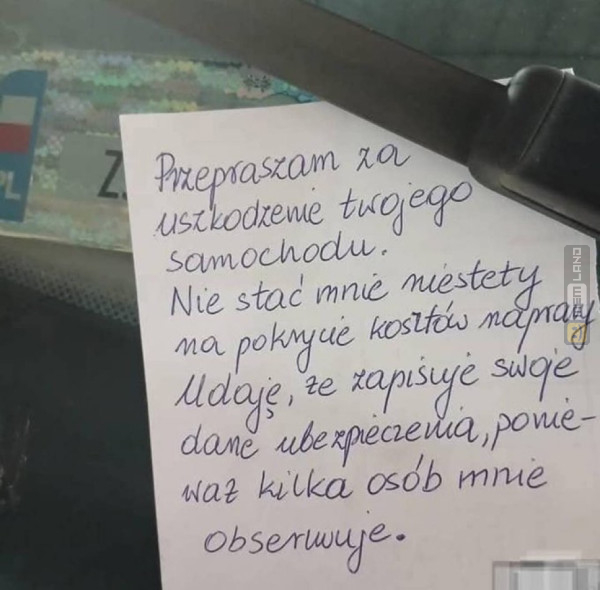 PL
Z
Przepraszam za
uszkodzenie twojego
samochodu.
Nie stać mnie niestety
na pokrycie kosztów napraw
Udaję, że zapisuję swoje
dane ubezpieczenia, ponie-
waż kilka osób mnie
obserwuje.